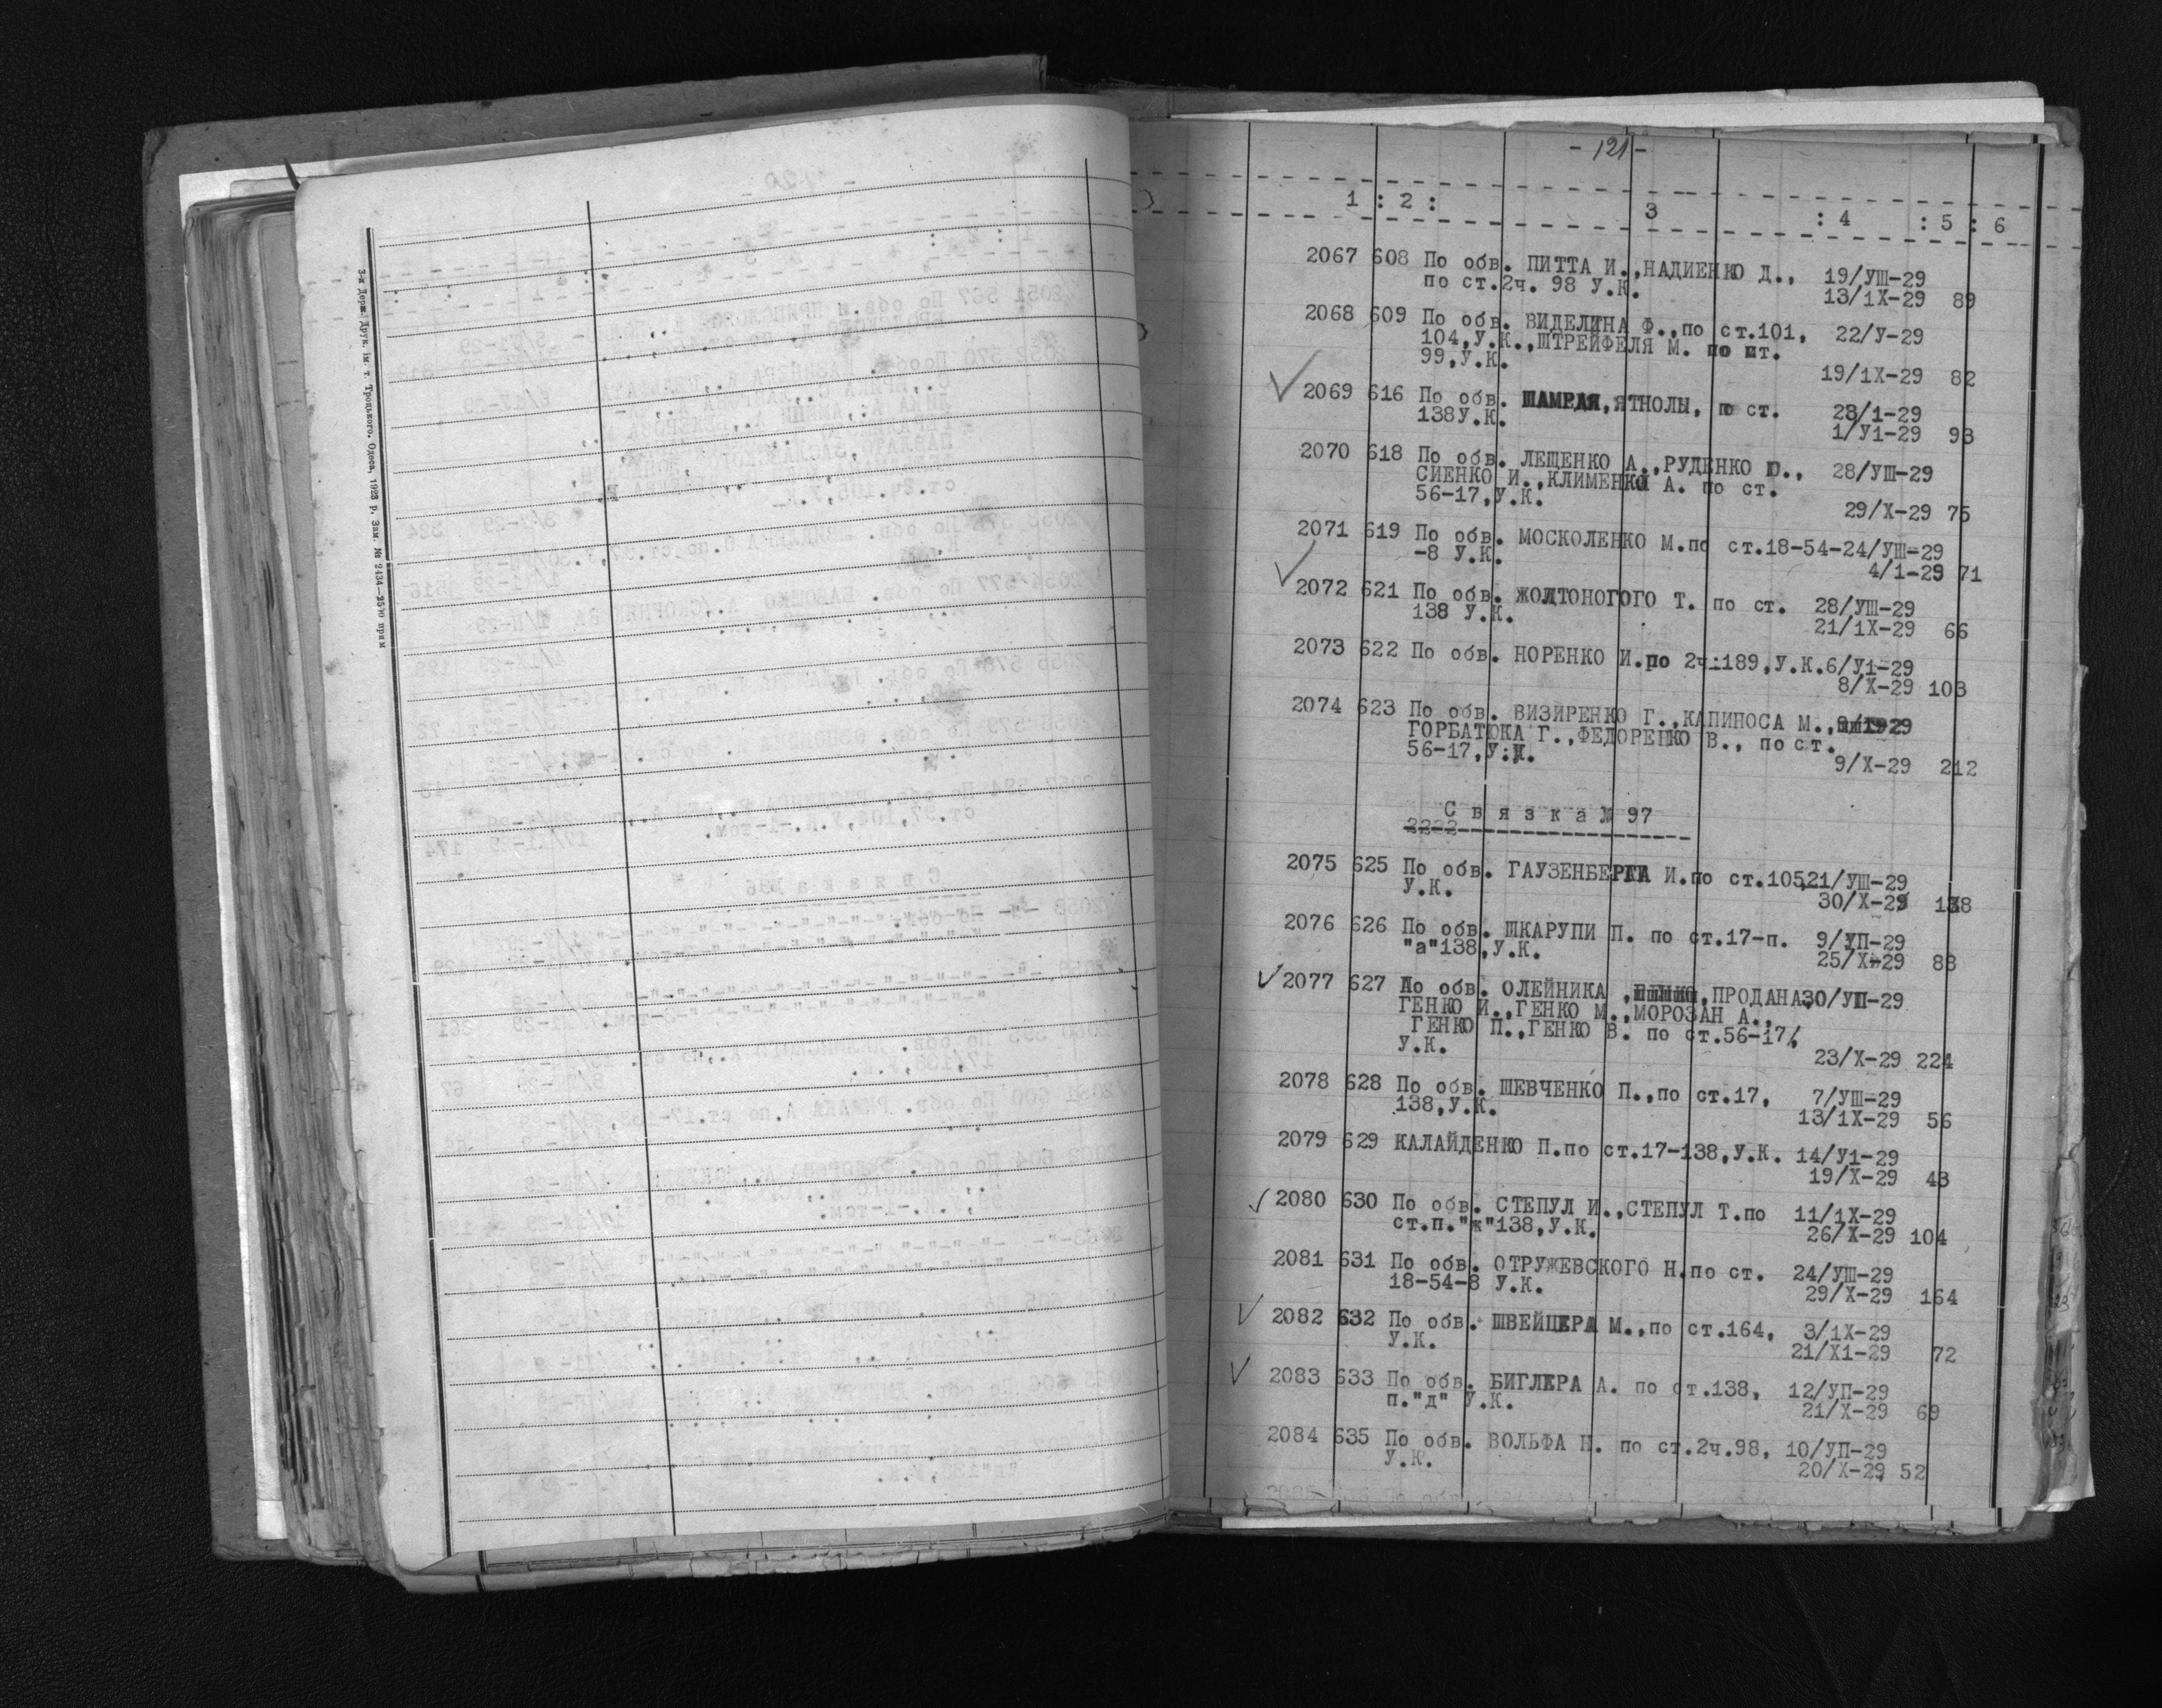 3-я Держ. Друк. ім. т. Троцького. Одеса, 1923 р. Зам. № 2434—25
- 121 -
1 : 2 : 3 : 4 : 5 : 6
2067 608 По обв. ПИТТА И.,НАДИЕНКО Д., 19/УШ-29
по ст.2ч. 98 У.К. 13/1Х-29 89
2068 609 По обв. ВИДЕЛИНА Ф.,по ст.101, 22/У-29
104,У.К.,ШТРЕЙФЕЛЯ М. по шт.
99,У.К. 19/1Х-29 82
2069 616 По обв. ШАМРАЯ,ЯТНОЛЫ, по ст. 28/1-29
138У.К. 1/У1-29 93
2070 618 По обв. ЛЕЩЕНКО А.,РУДЕНКО Ю., 28/УШ-29
СИЕНКО И.,КЛИМЕНКО А. по ст.
56-17,У.К. 29/Х-29 75
2071 619 По обв. МОСКОЛЕНКО М.по ст.18-54-24/УШ-29
-8 У.К. 4/1-29 71
2072 621 По обв. ЖОЛТОНОГОГО Т. по ст. 28/УШ-29
138 У.К. 21/1Х-29 66
2073 622 По обв. НОРЕНКО И.по 2ч.189,У.К.6/У1-29
8/Х-29 103
2074 623 По обв. ВИЗИРЕНКО Г.,КАПИНОСА М.,
ГОРБАТЮКА Г.,ФЕДОРЕНКО В., по ст.
56-17,У.К. 9/Х-29 212
С в я з к а № 97
2075 625 По обв. ГАУЗЕНБЕРГА И.по ст.105,21/УШ-29
У.К. 30/Х-29 138
2076 626 По обв. ШКАРУПИ П. по ст.17-п. 9/УП-29
"а"138,У.К. 25/Х-29 88
2077 627 По обв. ОЛЕЙНИКА ,ПРОДАНА,30/УП-29
ГЕНКО И.,ГЕНКО М.,МОРОЗАН А.,
ГЕНКО П.,ГЕНКО В. по ст.56-17,
У.К. 23/Х-29 224
2078 628 По обв. ШЕВЧЕНКО П.,по ст.17, 7/УШ-29
138,У.К. 13/1Х-29 56
2079 629 КАЛАЙДЕНКО П.по ст.17-138,У.К. 14/У1-29
19/Х-29 43
2080 630 По обв. СТЕПУЛ И.,СТЕПУЛ Т.по 11/1Х-29
ст.п."ж"138,У.К. 26/Х-29 104
2081 631 По обв. ОТРУЖЕВСКОГО Н.по ст. 24/УШ-29
18-54-8 У.К. 29/Х-29 164
2082 632 По обв. ШВЕЙЦЕРА М.,по ст.164, 3/1Х-29
У.К. 21/Х1-29 72
2083 633 По обв. БИГЛЕРА А. по ст.138, 12/УП-29
п."д" У.К. 21/Х-29 69
2084 635 По обв. ВОЛЬФА Н. по ст.2ч.98, 10/УП-29
У.К. 20/Х-29 52